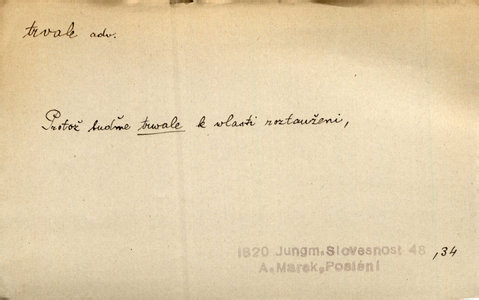 trvale adv.
Protož buďme trwale k wlasti roztauženi,
1820 Jungm.Slovesnost 48 ,34
A.Marek,Poslání